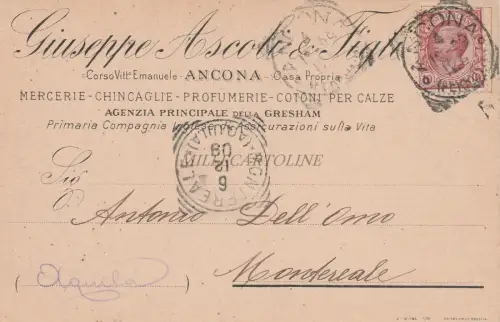 Giuseppe Ascoli & Figli
Corso Vitt. Emanuele - ANCONA - Casa Propria
MERCERIE - CHINCAGLIE - PROFUMERIE - COTONI PER CALZE
AGENZIA PRINCIPALE DELLA GRESHAM
Primaria Compagnia Inglese di Assicurazioni sulla Vita
ANCONA
MONTEREALE (AQUILA)
6
12
09
MILLECARTOLINE
Sig
Antonio Dell'Omo
Montereale
(Aquila)